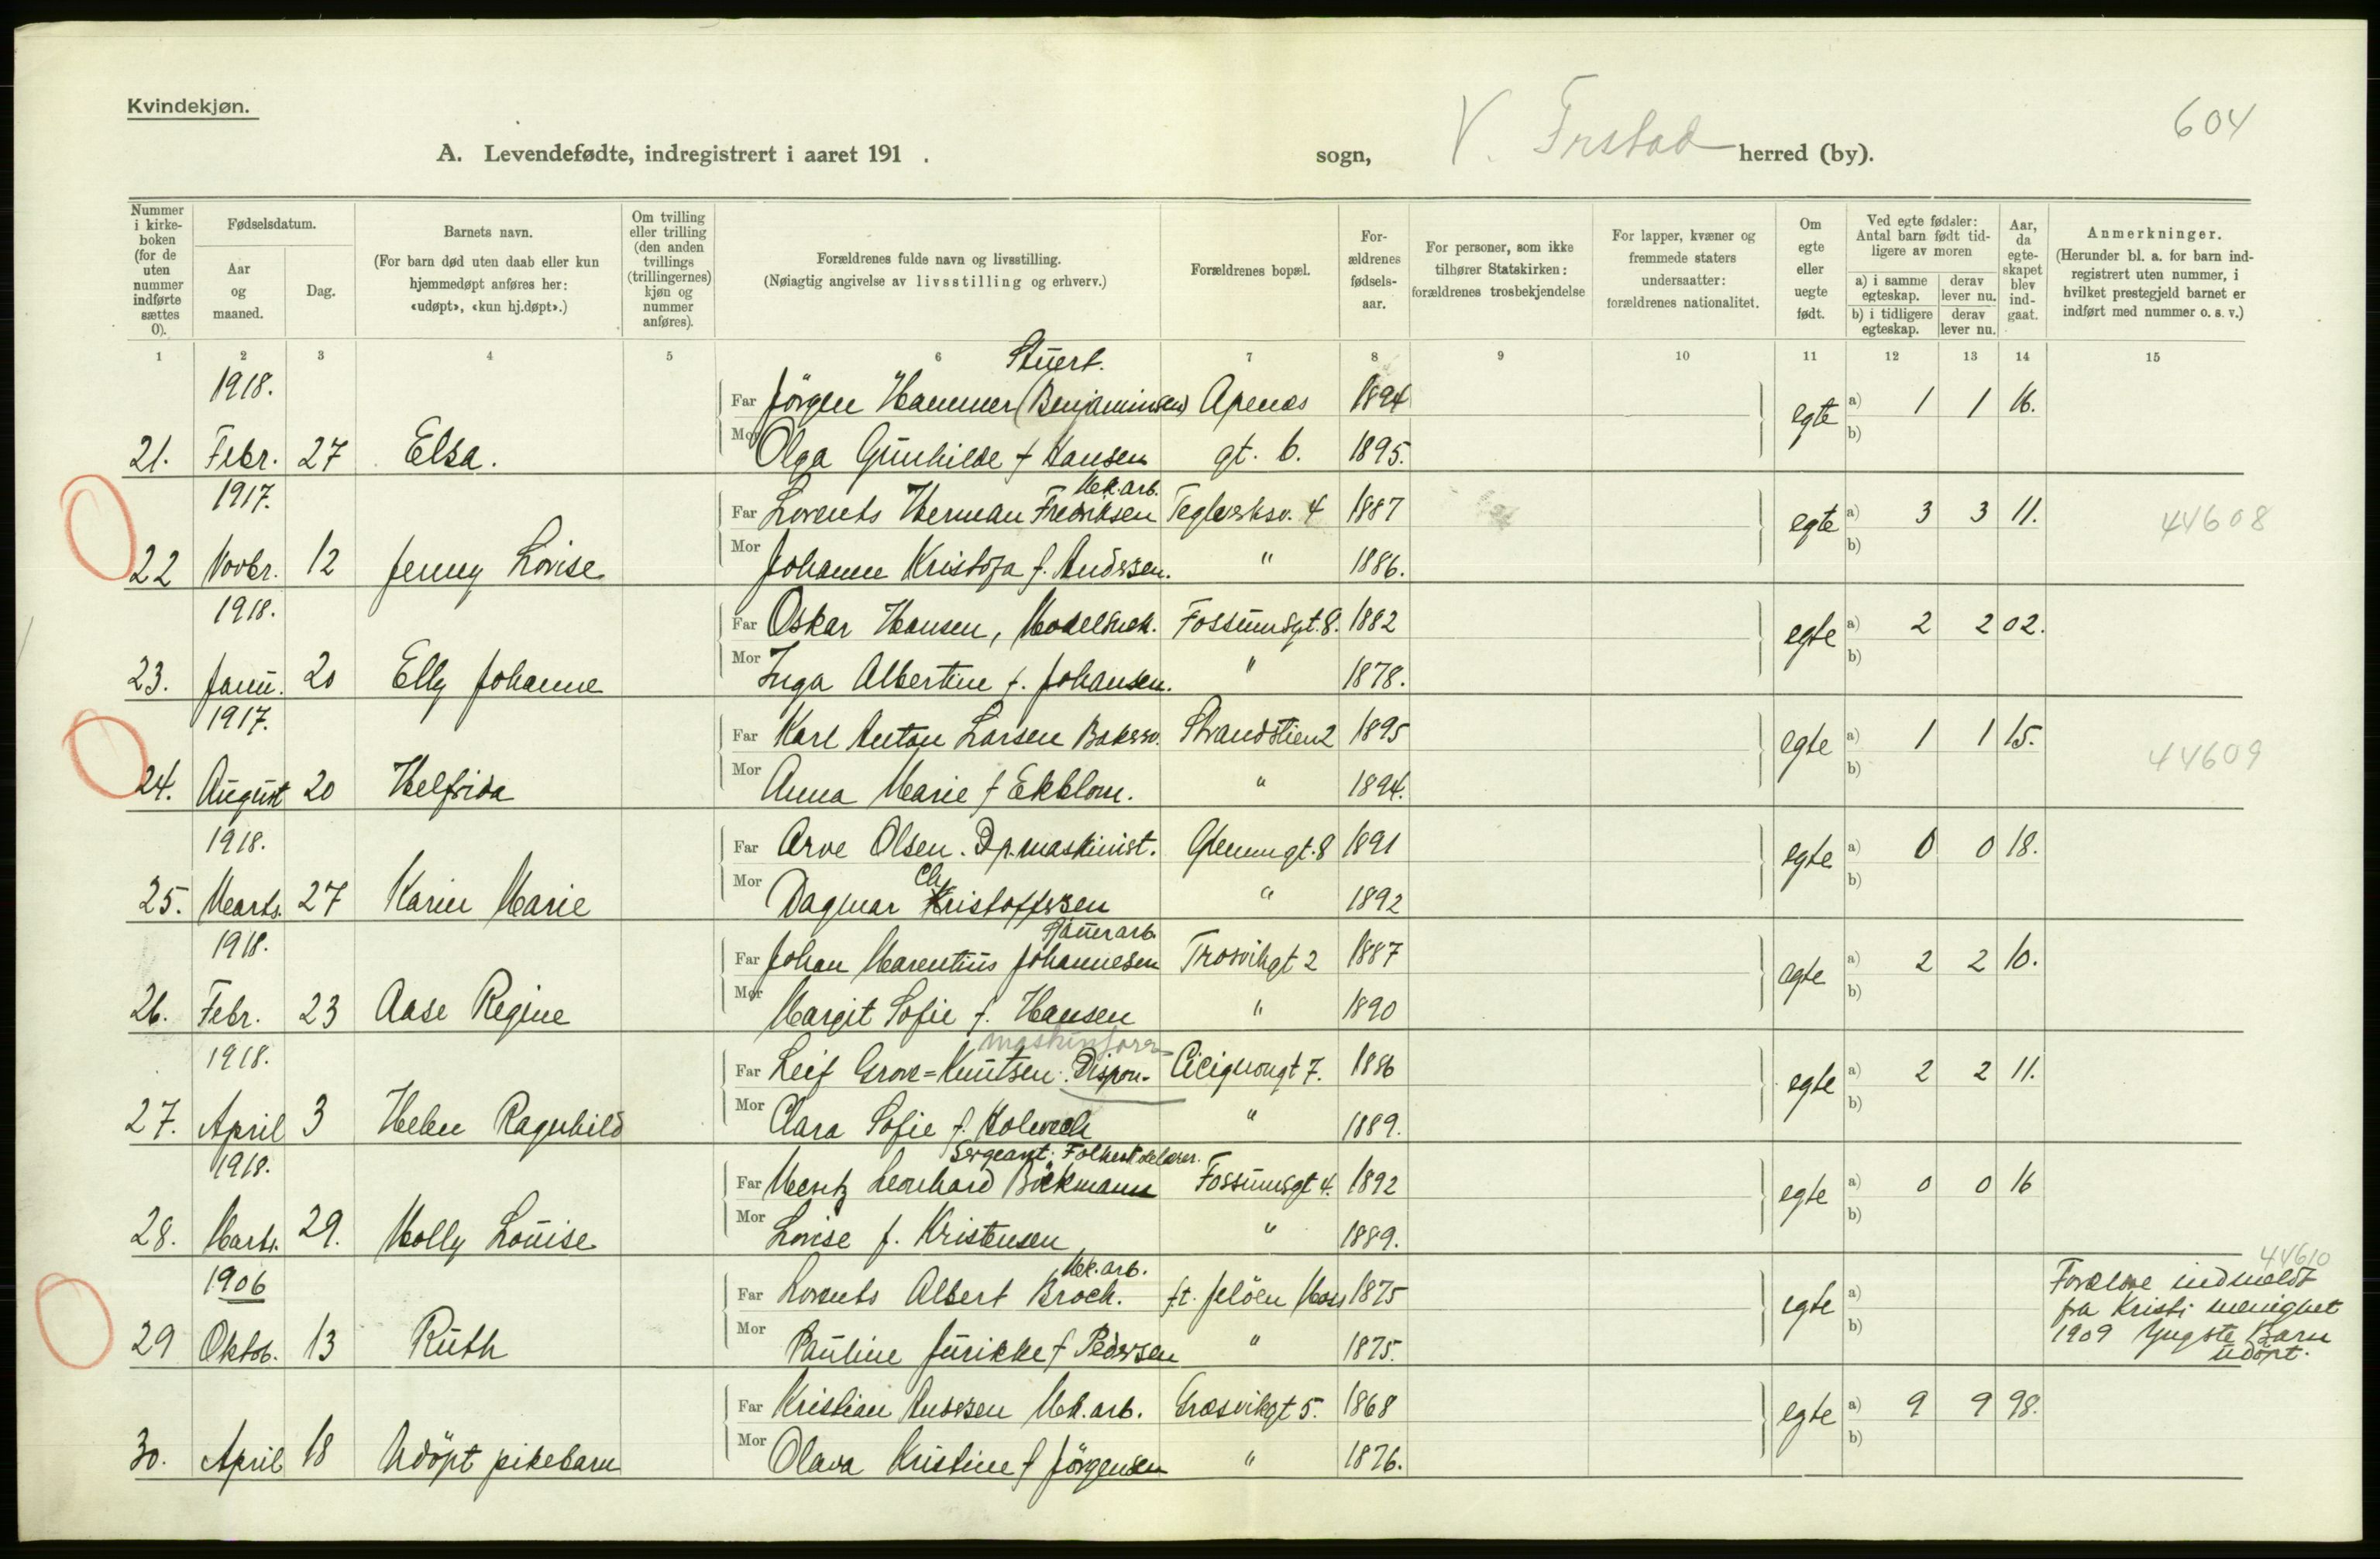 Kvindekjøn.
604
A. Levendefødte, indregistrert i aaret 191 . sogn, V. Frstad herred (by).
Nummer i kirke-boken (for de uten nummer indførte sættes 0).
Fødselsdatum.
Aar og maaned.
Dag.
Barnets navn.
(For barn død uten daab eller kun hjemmedøpt anføres her: «udøpt», «kun hj.døpt».)
Om tvilling eller trilling (den anden tvillings (trillingernes) kjøn og nummer anføres).
Forældrenes fulde navn og livsstilling.
(Nøiagtig angivelse av livsstilling og erhverv.)
Forældrenes bopæl.
For-ældrenes fødsels-aar.
For personer, som ikke tilhører Statskirken: forældrenes trosbekjendelse
For lapper, kvæner og fremmede staters undersaatter: forældrenes nationalitet.
Om egte eller uegte født.
Ved egte fødsler: Antal barn født tid-ligere av moren
a) i samme egteskap. derav lever nu.
b) i tidligere egteskap. derav lever nu.
Aar, da egte-skapet blev ind-gaat.
Anmerkninger.
(Herunder bl. a. for barn ind-registrert uten nummer, i hvilket prestegjeld barnet er indført med nummer o. s. v.)
1 2 3 4 5 6 7 8 9 10 11 12 13 14 15
Stuert.
1918. Far Jörgen Hammer (Benjaminsen) Apenæs 1894 egte a) 1 1 16.
21. Febr. 27 Elsa. Mor Olga Gunhilde f Hansen gt. 6. 1895. b)
Mek. arb.
1917. Far Lorents Herman Fredriksen Teglverksv. 4 1887 egte a) 3 3 11. 44608
22 Novbr. 12 Jenny Lovise Mor Johanne Kristofa f. Andersen. " 1886. b)
1918. Far Oskar Hansen, Modelsnek. Fossumsgt. 8. 1882 egte a) 2 2 02.
23. Janu. 20 Elly Johanne Mor Inga Albertine f. Johansen. " 1878. b)
1917. Far Karl Anton Larsen Bakersv. Strandstien 2 1895 egte a) 1 1 15. 44609
24. August 20 Helfrida Mor Anna Marie f Ekblom. " 1894. b)
1918. Far Arve Olsen. Dp. maskinist. Glemmgt. 8 1891 egte a) 0 0 18.
25. Marts. 27 Karin Marie Mor Dagmar Christoffersen " 1892 b)
1918. Far Johan Marentius Johannesen Trosvikgt 2 1887 egte a) 2 2 10.
26. Febr. 23 Aase Regine Mor Margit Sofie f. Hansen " 1890 b)
maskinforr
1918. Far Leif Grove=Knutsen. Dispon. Cicignongt 7. 1886 egte a) 2 2 11.
27. April 3 Helen Ragnhild Mor Clara Sofie f. Holwech " 1889. b)
Sergeant.
1918. Far Mentz Leonhard Böckmann Fossumsgt 4. 1892 egte a) 0 0 16
28. Marts. 29. Molly Louise Mor Lovise f. Kristensen " 1889. b)
44610
Mek. arb.
1906 Far Lorents Albert Broch. f.t. Jelöen Moss 1875 egte a) Forældre indmeldt
fra Kristi menighet
29 Oktob. 13 Ruth Mor Pauline Jurikke f Pedersen " 1875. b) 1909 Yngste Barn
udöpt.
Far Kristian Andersen Mek. arb. Græsvikgt 5. 1868 egte a) 9 9 98.
30. April 18 Udöpt pikebarn Mor Olava Kristine f Jörgensen " 1876. b)